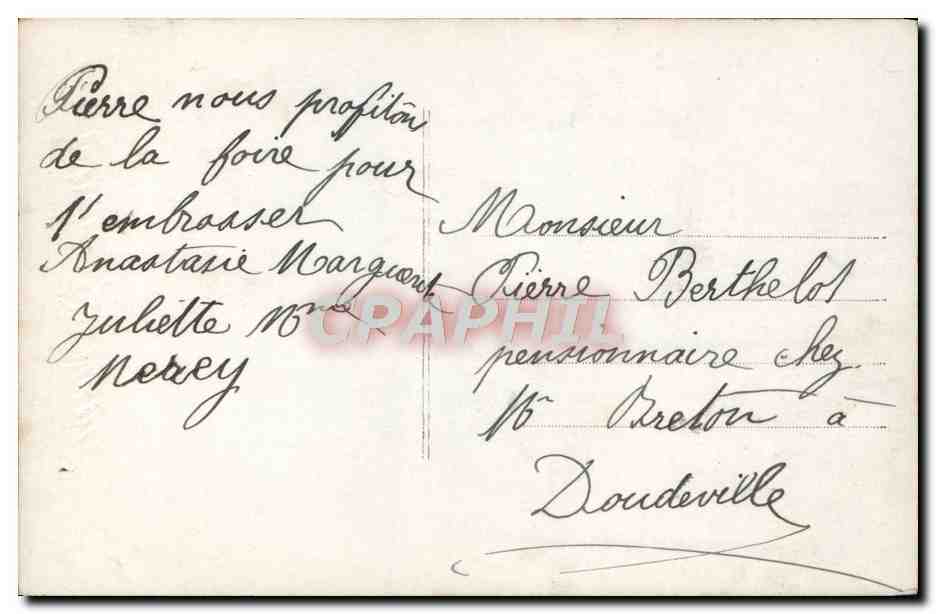 Pierre nous profiton
de la foire pour
t'embrasser
Anastasie Marguerite
Juliette Mme
Mercey
Monsieur
Pierre Berthelot
pensionnaire chez
Mr Breton à
Doudeville
CPARPHIL